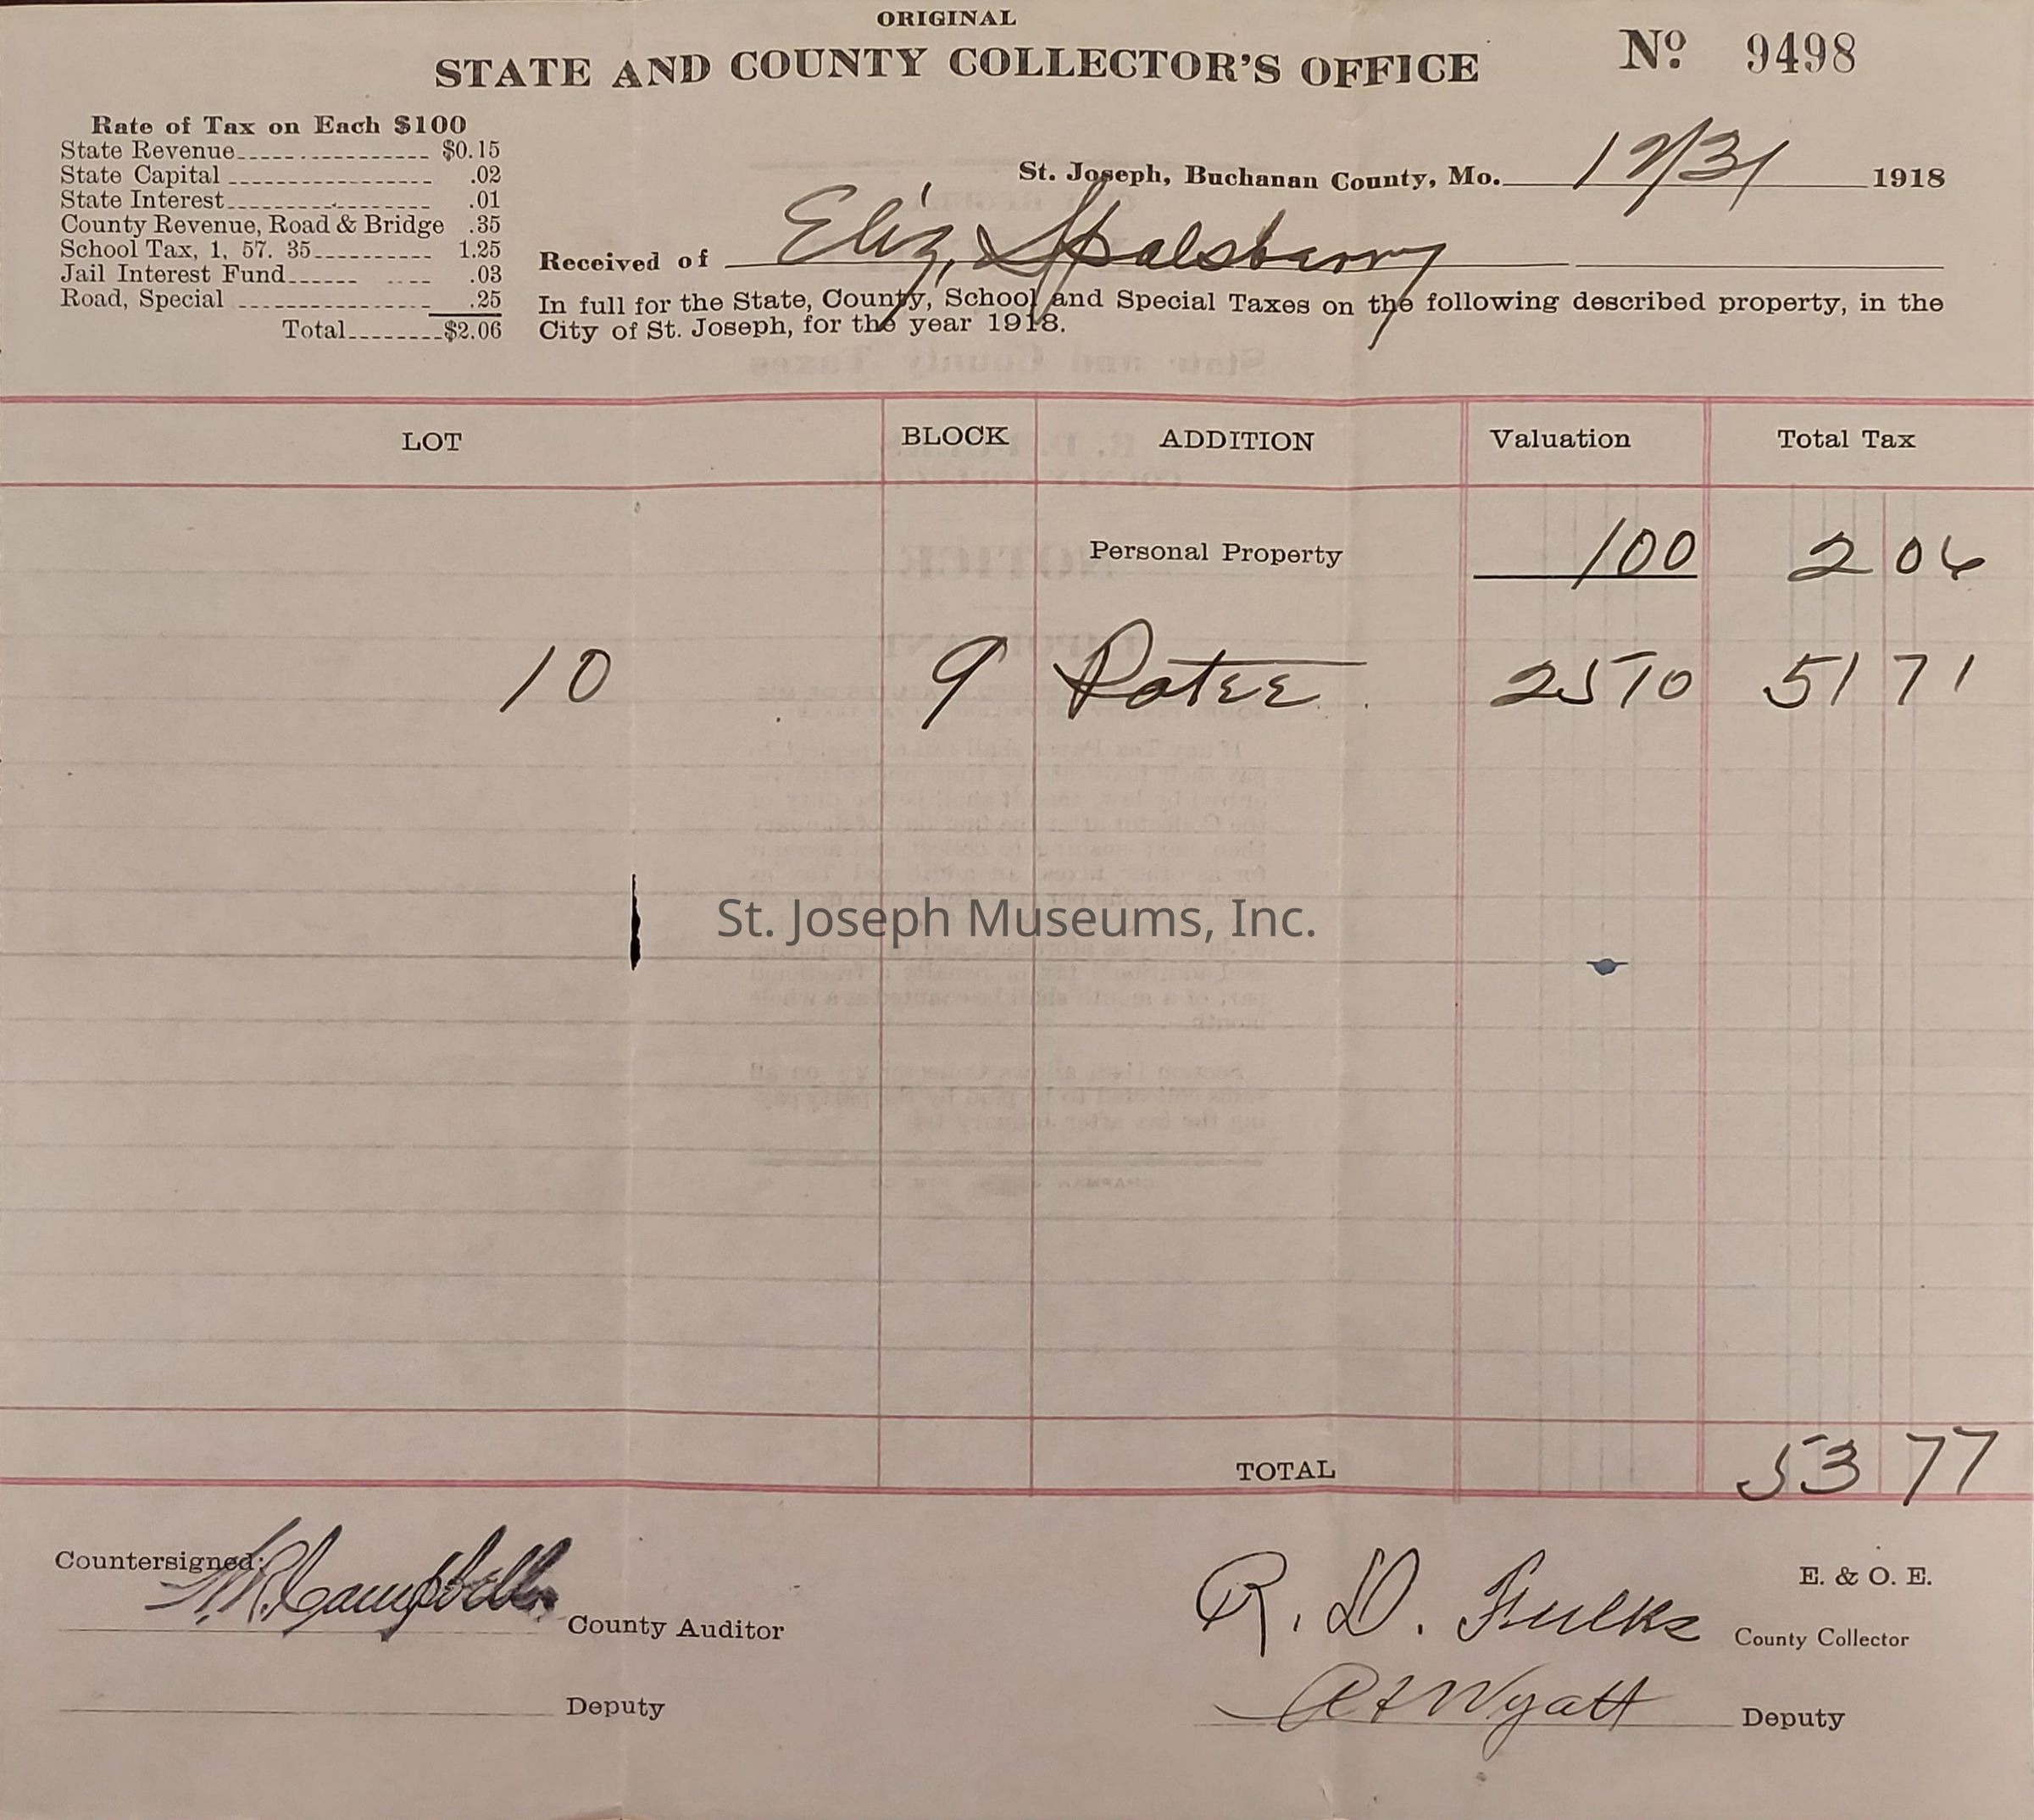 ORIGINAL
STATE AND COUNTY COLLECTOR'S OFFICE
No. 9498
Rate of Tax on Each $100
State Revenue $0.15
State Capital .02
State Interest .01
County Revenue, Road & Bridge .35
School Tax, 1, 57. 35 1.25
Jail Interest Fund .03
Road, Special .25
Total $2.06
St. Joseph, Buchanan County, Mo. 12/31 1918
Received of Eliz, Spalsbury
In full for the State, County, School and Special Taxes on the following described property, in the
City of St. Joseph, for the year 1918.
LOT BLOCK ADDITION Valuation Total Tax
Personal Property 100 2 06
10 9 Patee 2510 51 71
St. Joseph Museums, Inc.
TOTAL 53 77
Countersigned: Campbell County Auditor
Deputy
E. & O. E.
R. D. Fulks County Collector
Wyatt Deputy